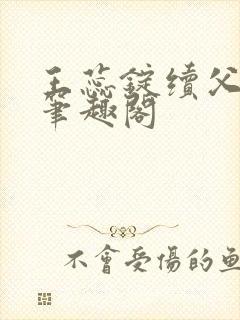 王蕊錠續父
筆趣閣
不會受傷的魚